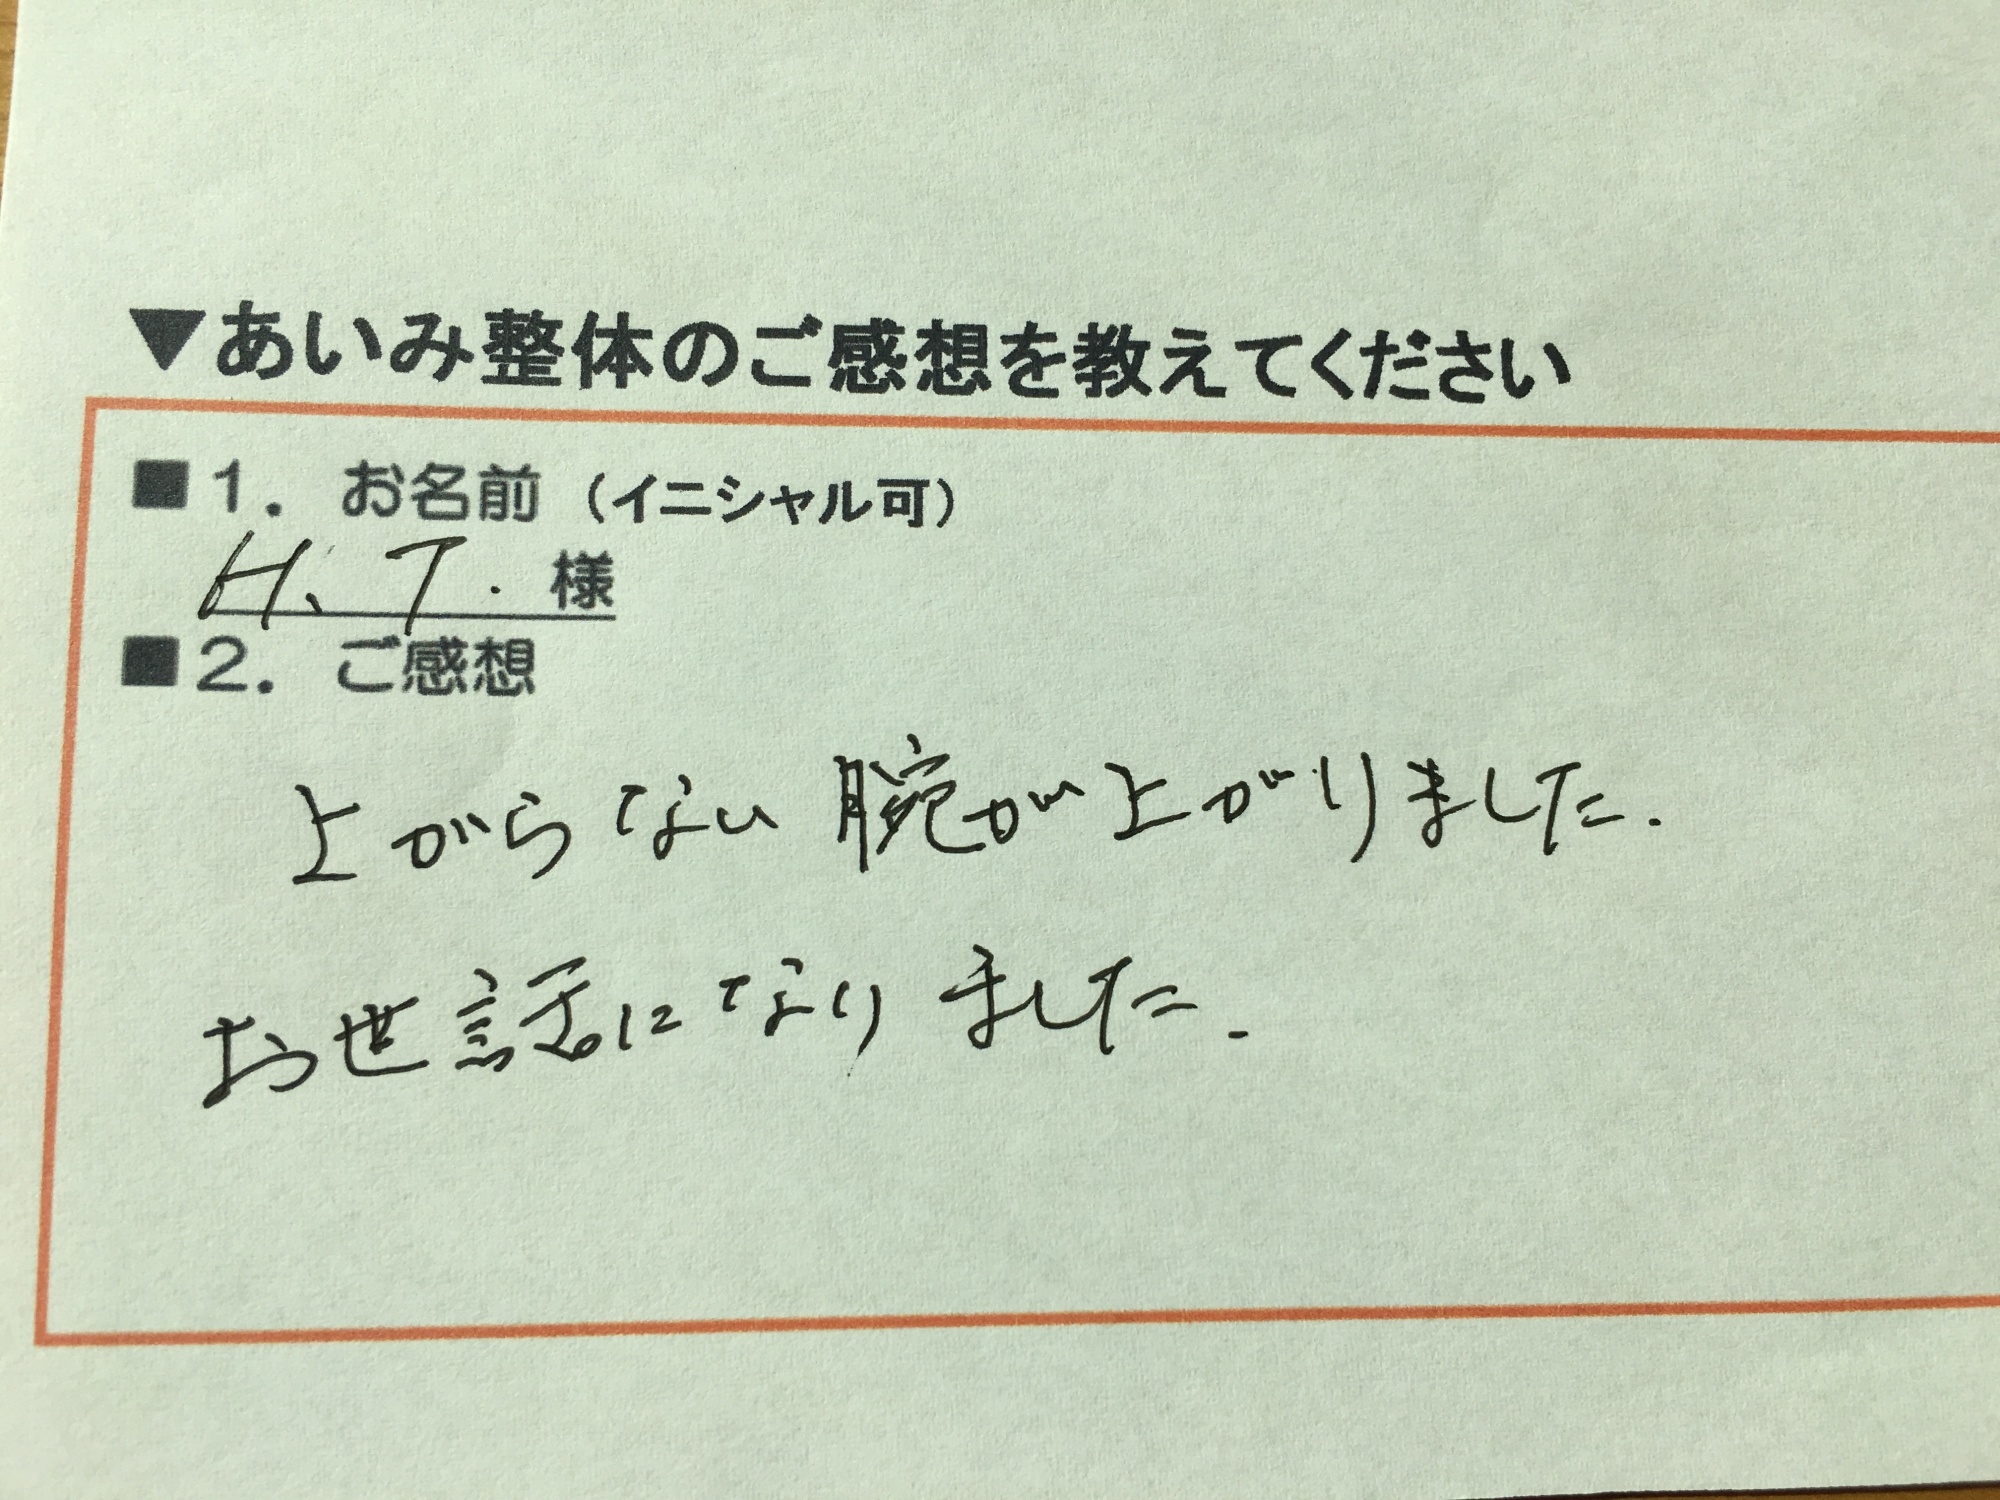 ▼あいみ整体のご感想を教えてください
■1. お名前（イニシャル可）
H. T. 様
■2. ご感想
上がらない腕が上がりました.
お世話になりました.